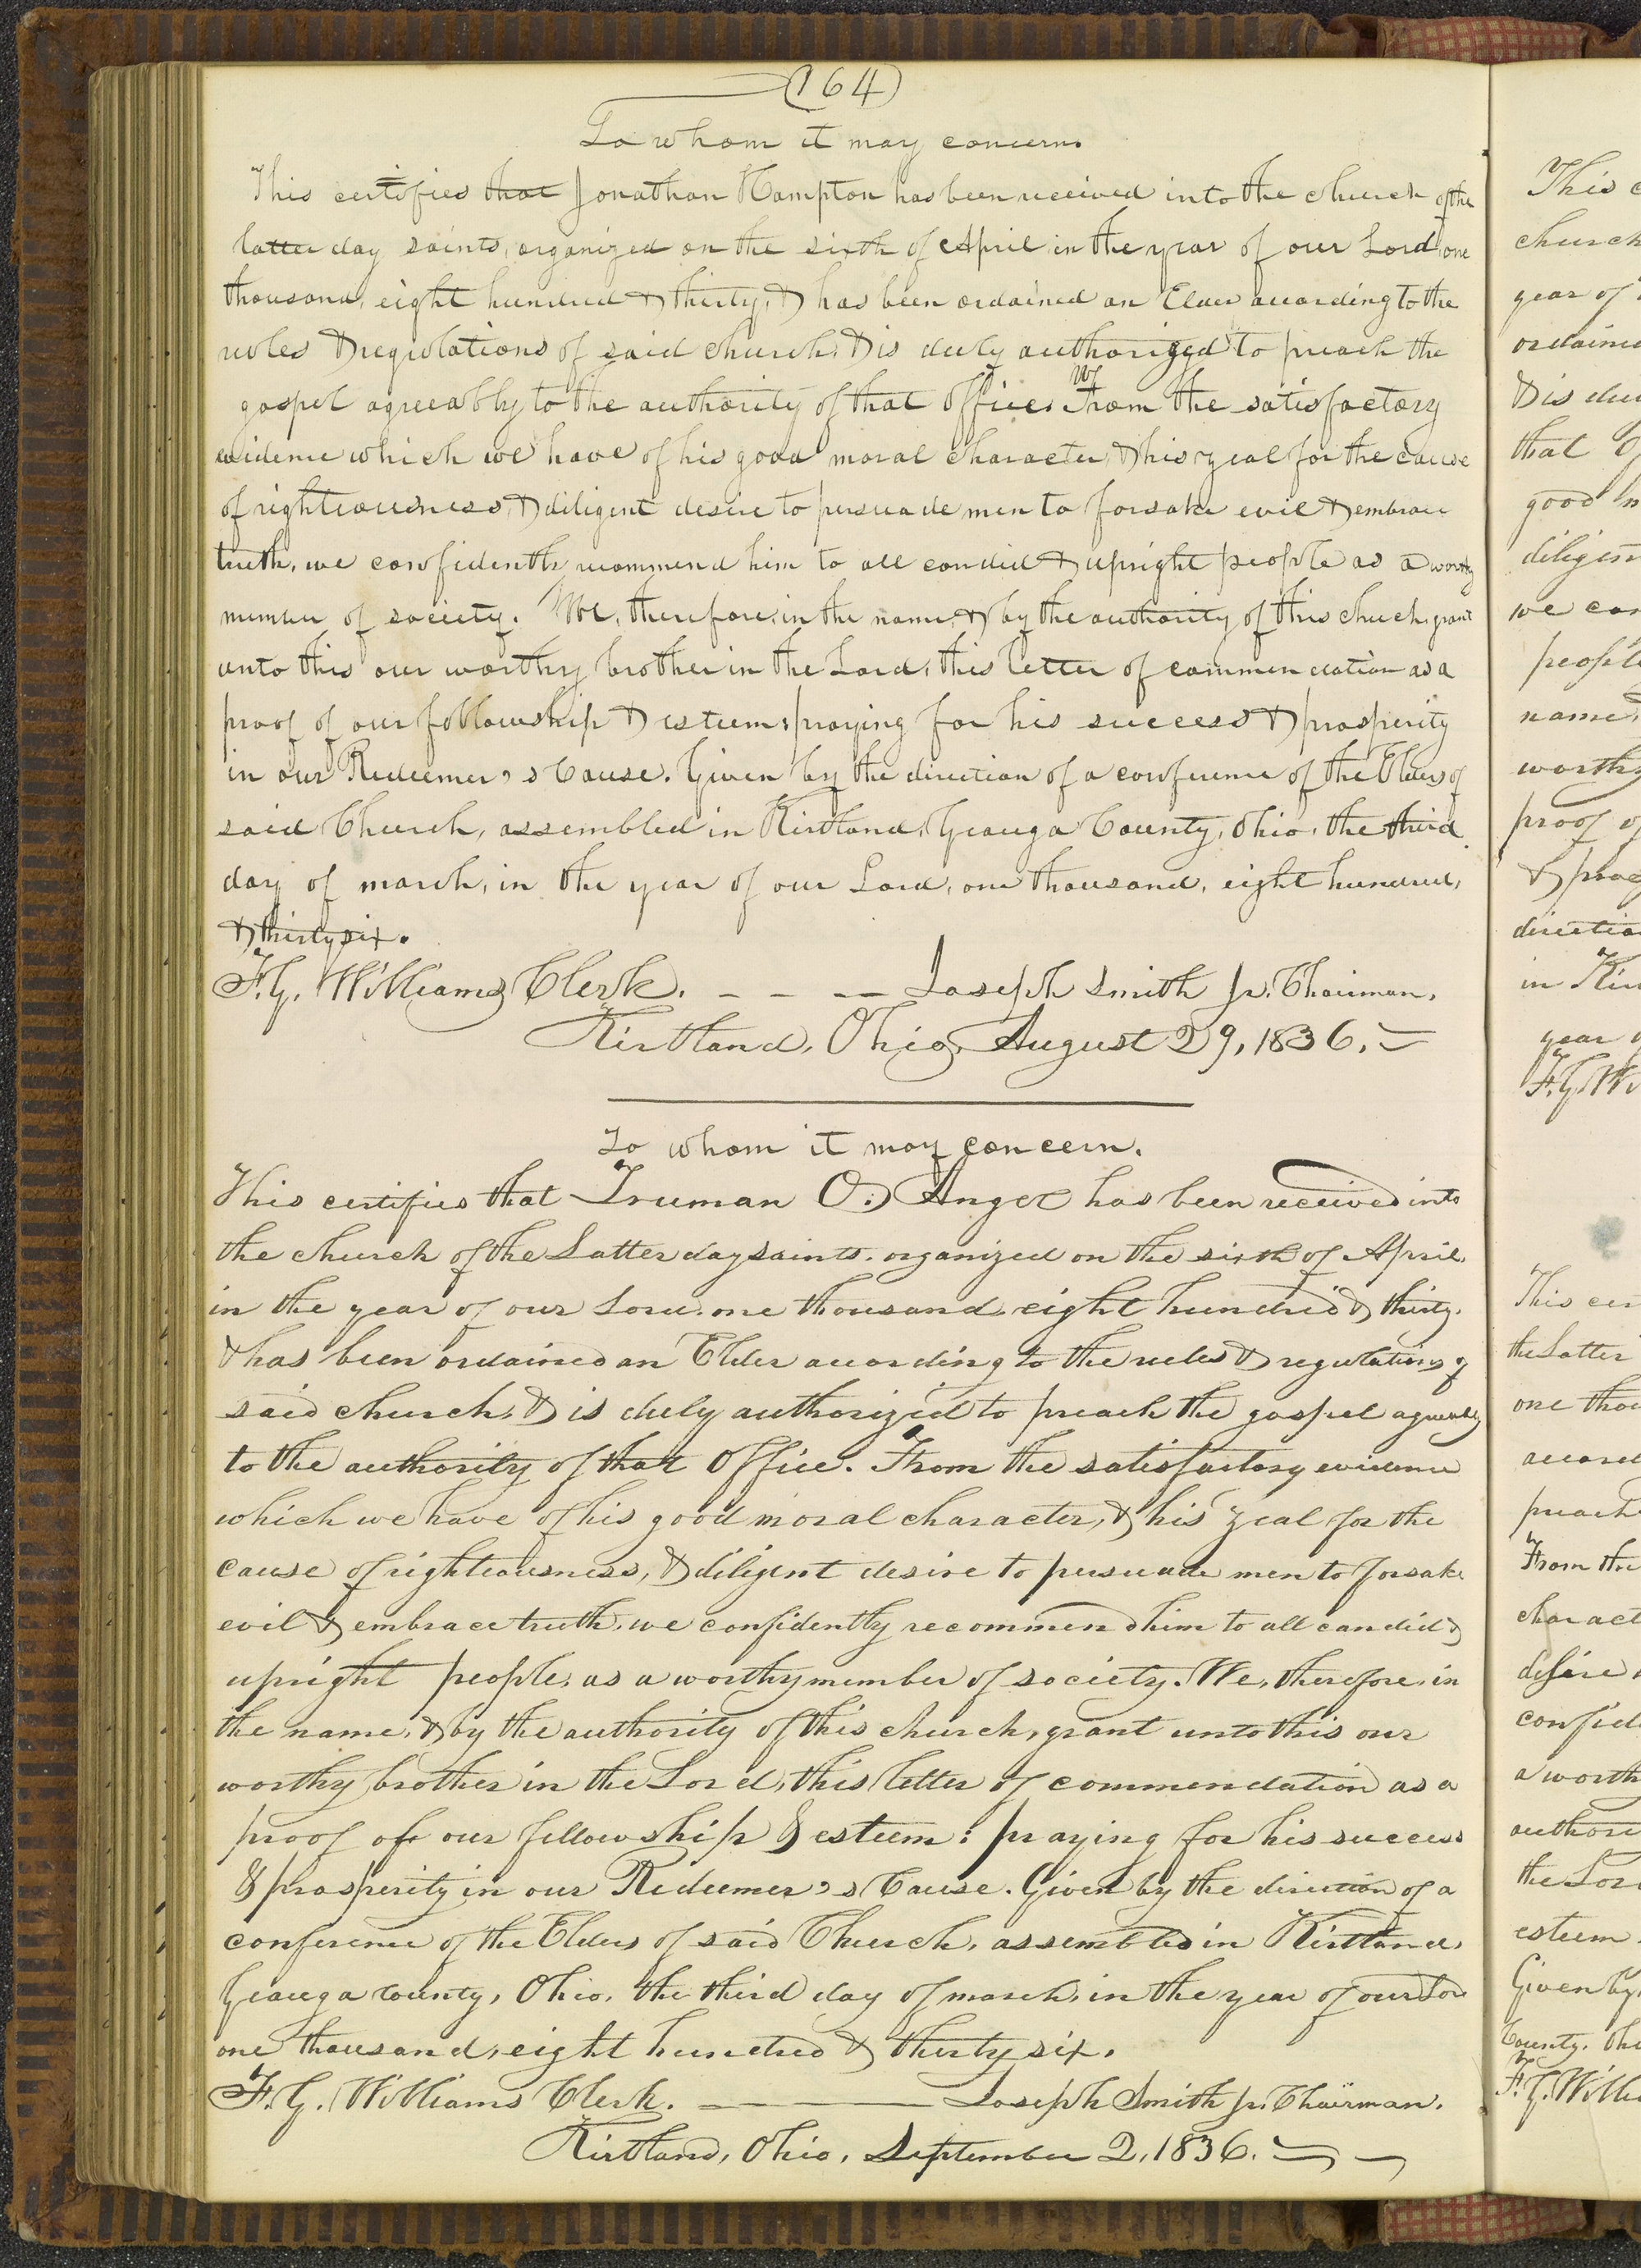 (164)
To whom it may concern.
This certifies that Jonathan Hampton has been received into the church of the
latter day saints, organized on the sixth of April in the year of our Lord one
thousand, eight hundred & thirty, & has been ordained an Elder according to the
rules & regulations of said church, & is duly authorized to preach the
gospel agreeably to the authority of that office. From the satisfactory
evidence which we have of his good moral character, & his zeal for the cause
of righteousness, & diligent desire to persuade men to forsake evil & embrace
truth, we confidently recommend him to all candid & upright people as a worthy
member of society. We, therefore, in the name, & by the authority of this church, grant
unto this our worthy brother in the Lord, this letter of commendation as a
proof of our fellowship & esteem: praying for his success & prosperity
in our Redeemer's Cause. Given by the direction of a conference of the Elders of
said Church, assembled in Kirtland, Geauga County, Ohio, the third
day of march, in the year of our Lord, one thousand, eight hundred,
& thirty six.
F. G. Williams Clerk. — — — Joseph Smith Jr. Chairman.
Kirtland, Ohio, August 29, 1836.
To whom it may concern.
This certifies that Truman O. Angel has been received into
the church of the Latter day saints, organized on the sixth of April,
in the year of our Lord, one thousand, eight hundred & thirty,
& has been ordained an Elder according to the rules & regulations of
said church, & is duly authorized to preach the gospel agreeably
to the authority of that Office. From the satisfactory evidence
which we have of his good moral character, & his zeal for the
cause of righteousness, & diligent desire to persuade men to forsake
evil & embrace truth, we confidently recommend him to all candid &
upright people, as a worthy member of society. We, therefore, in
the name, & by the authority of this church, grant unto this our
worthy brother in the Lord, this letter of commendation as a
proof of our fellowship & esteem: praying for his success
& prosperity in our Redeemer's Cause. Given by the direction of a
conference of the Elders of said Church, assembled in Kirtland,
Geauga County, Ohio, the third day of march, in the year of our Lord
one thousand, eight hundred & thirty six.
F. G. Williams Clerk. — — — Joseph Smith Jr. Chairman.
Kirtland, Ohio, September 2, 1836.
This
church
year of
ordained
& is
that
good
diligen
we
people
name
worthy
proof of
&
direction
in
year
F. G.
This
the Latter
one
accord
preach
From the
charact
desire
confid
a worth
author
the
esteem
Given by
County,
F. G. Willi